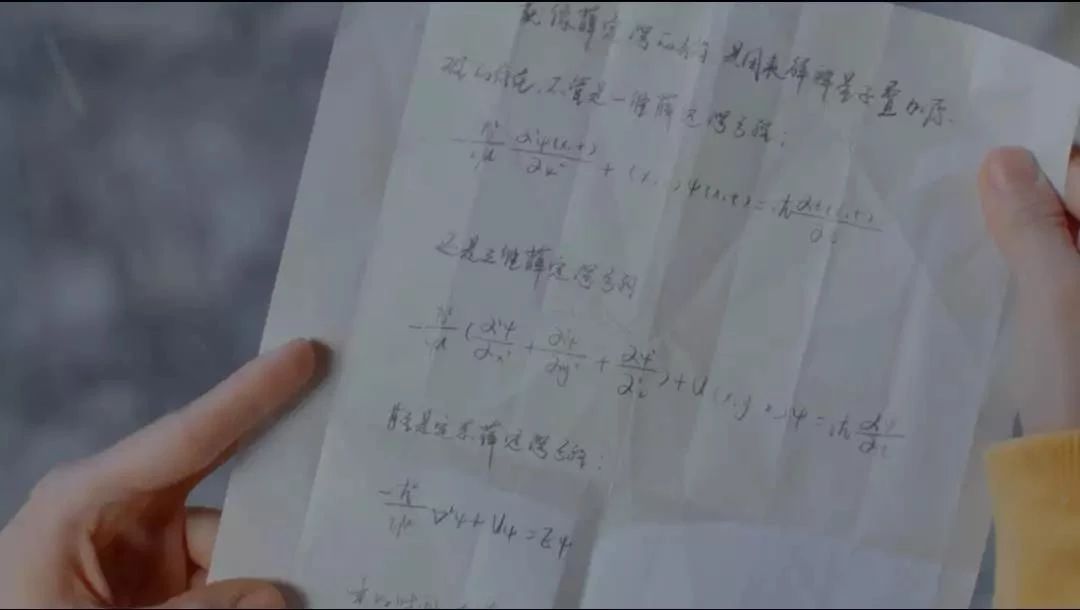 就像薛定谔的方 是用来解释量子叠加原
理的存在,不管是一维薛定谔方程:
-ħ²/2μ ∂²ψ(x,t)/∂x² + U(x,t)ψ(x,t) = iħ ∂ψ(x,t)/∂t
还是三维薛定谔方程
-ħ²/2μ (∂²ψ/∂x² + ∂²ψ/∂y² + ∂²ψ/∂z²) + U(x,y,z)ψ = iħ ∂ψ/∂t
或者是定态薛定谔方程:
-ħ²/2μ ∇²ψ + Uψ = Eψ